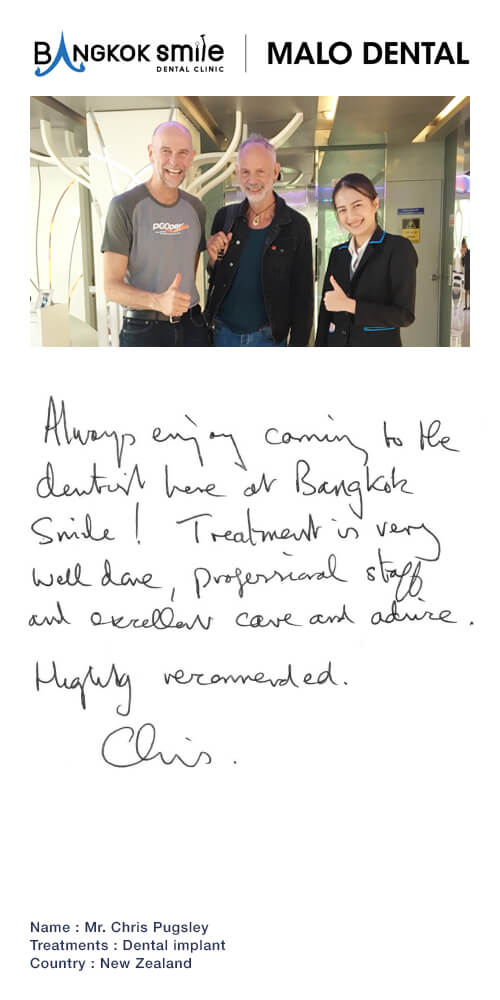 BANGKOK smile
DENTAL CLINIC
MALO DENTAL
Always enjoy coming to the
dentist here at Bangkok
Smile! Treatment is very
well done, professional staff
and excellent care and advice.
Highly recommended.
Chris.
Name : Mr. Chris Pugsley
Treatments : Dental implant
Country : New Zealand